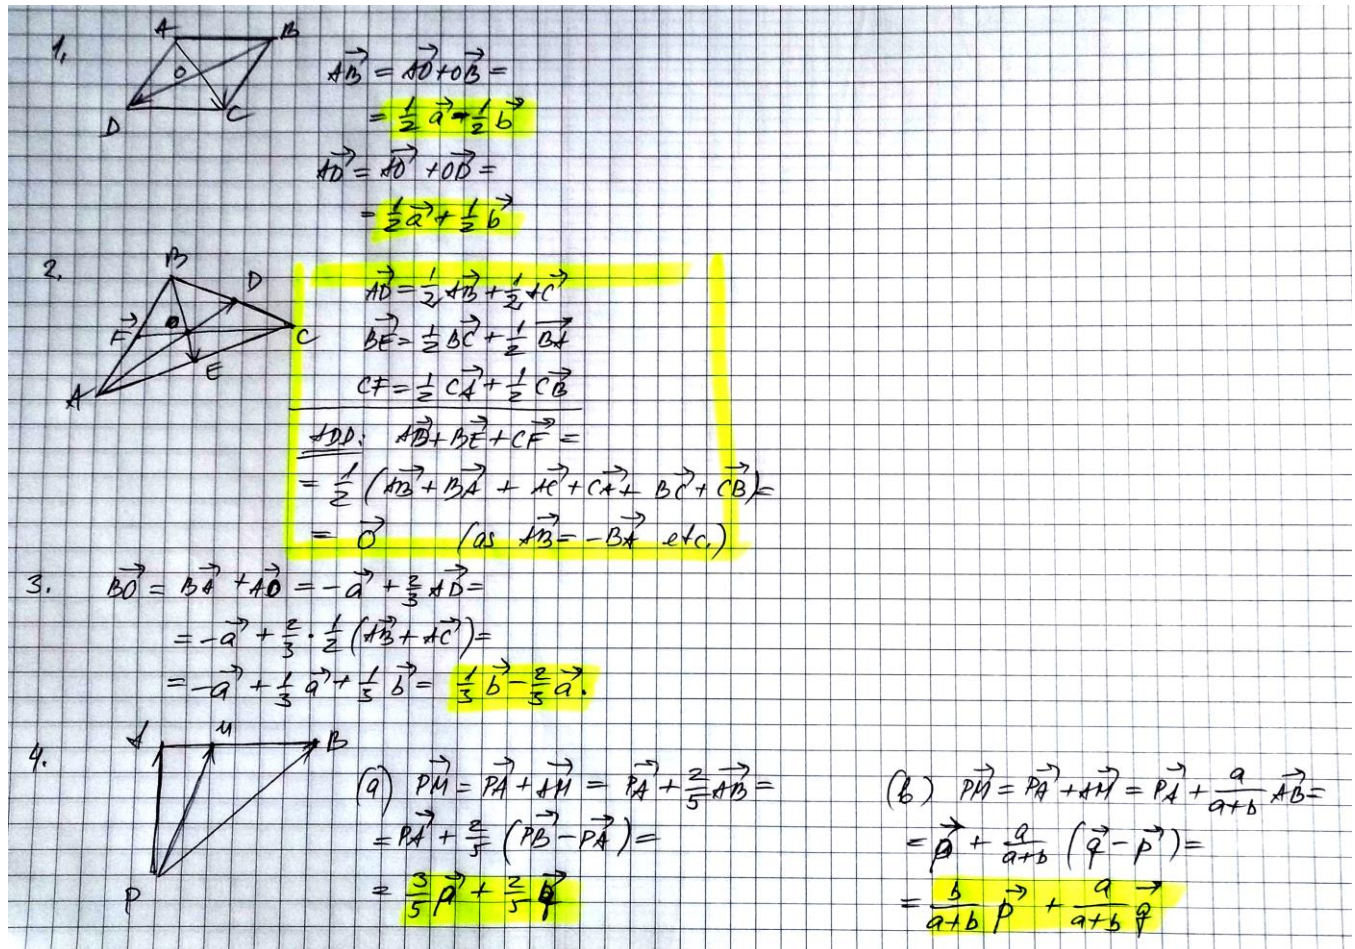 1.
A B
O
D C
AB⃗ = AO⃗ + OB⃗ =
= 1/2 a⃗ - 1/2 b⃗
AD⃗ = AO⃗ + OD⃗ =
= 1/2 a⃗ + 1/2 b⃗
2.
B D
F O C
E
A
AD⃗ = 1/2 AB⃗ + 1/2 AC⃗
BE⃗ = 1/2 BC⃗ + 1/2 BA⃗
CF = 1/2 CA⃗ + 1/2 CB⃗
ADD: AD⃗ + BE⃗ + CF⃗ =
= 1/2 (AB⃗ + BA⃗ + AC⃗ + CA⃗ + BC⃗ + CB⃗) =
= 0⃗ (as AB⃗ = -BA⃗ etc.)
3. BO⃗ = BA⃗ + AO⃗ = -a⃗ + 2/3 AD⃗ =
= -a⃗ + 2/3 · 1/2 (AB⃗ + AC⃗) =
= -a⃗ + 1/3 a⃗ + 1/3 b⃗ = 1/3 b⃗ - 2/3 a⃗.
4.
A M B
P
(a) PM⃗ = PA⃗ + AM⃗ = PA⃗ + 2/5 AB⃗ =
= PA⃗ + 2/5 (PB⃗ - PA⃗) =
= 3/5 p⃗ + 2/5 q⃗
(b) PM⃗ = PA⃗ + AM⃗ = PA⃗ + a/(a+b) AB⃗ =
= p⃗ + a/(a+b) (q⃗ - p⃗) =
= b/(a+b) p⃗ + a/(a+b) q⃗